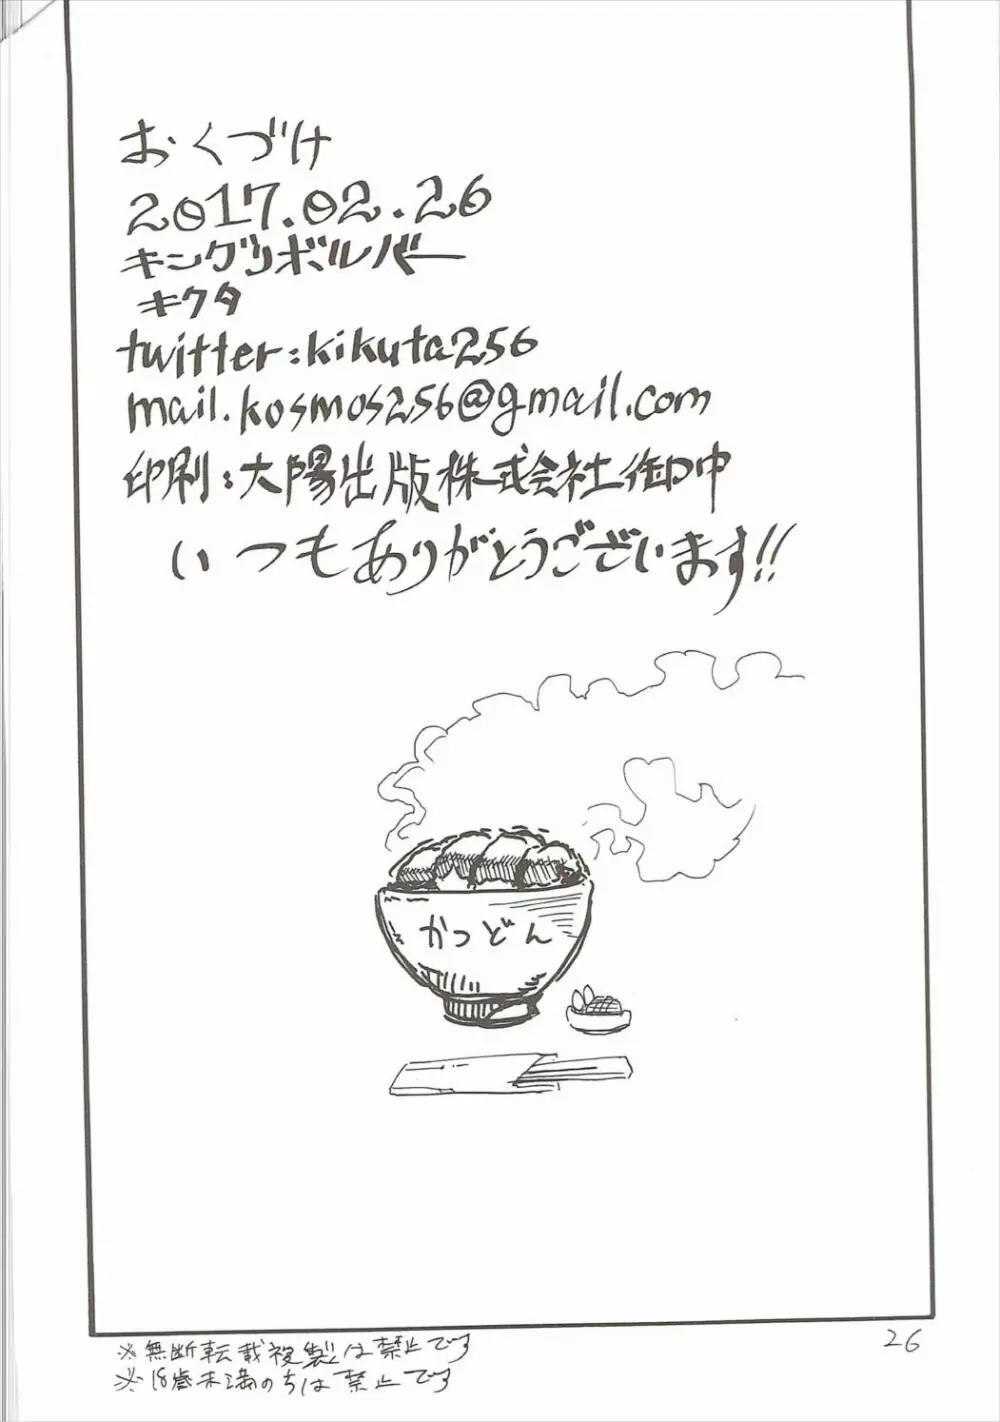 おくづけ
2017.02.26
キングリボルバー
キクタ
twitter:kikuta256
mail.kosmos256@gmail.com
印刷:大陽出版株式会社御中
いつもありがとうございます!!
かつどん
26
※無断転載複製は禁止です
※18歳未満のちは禁止です